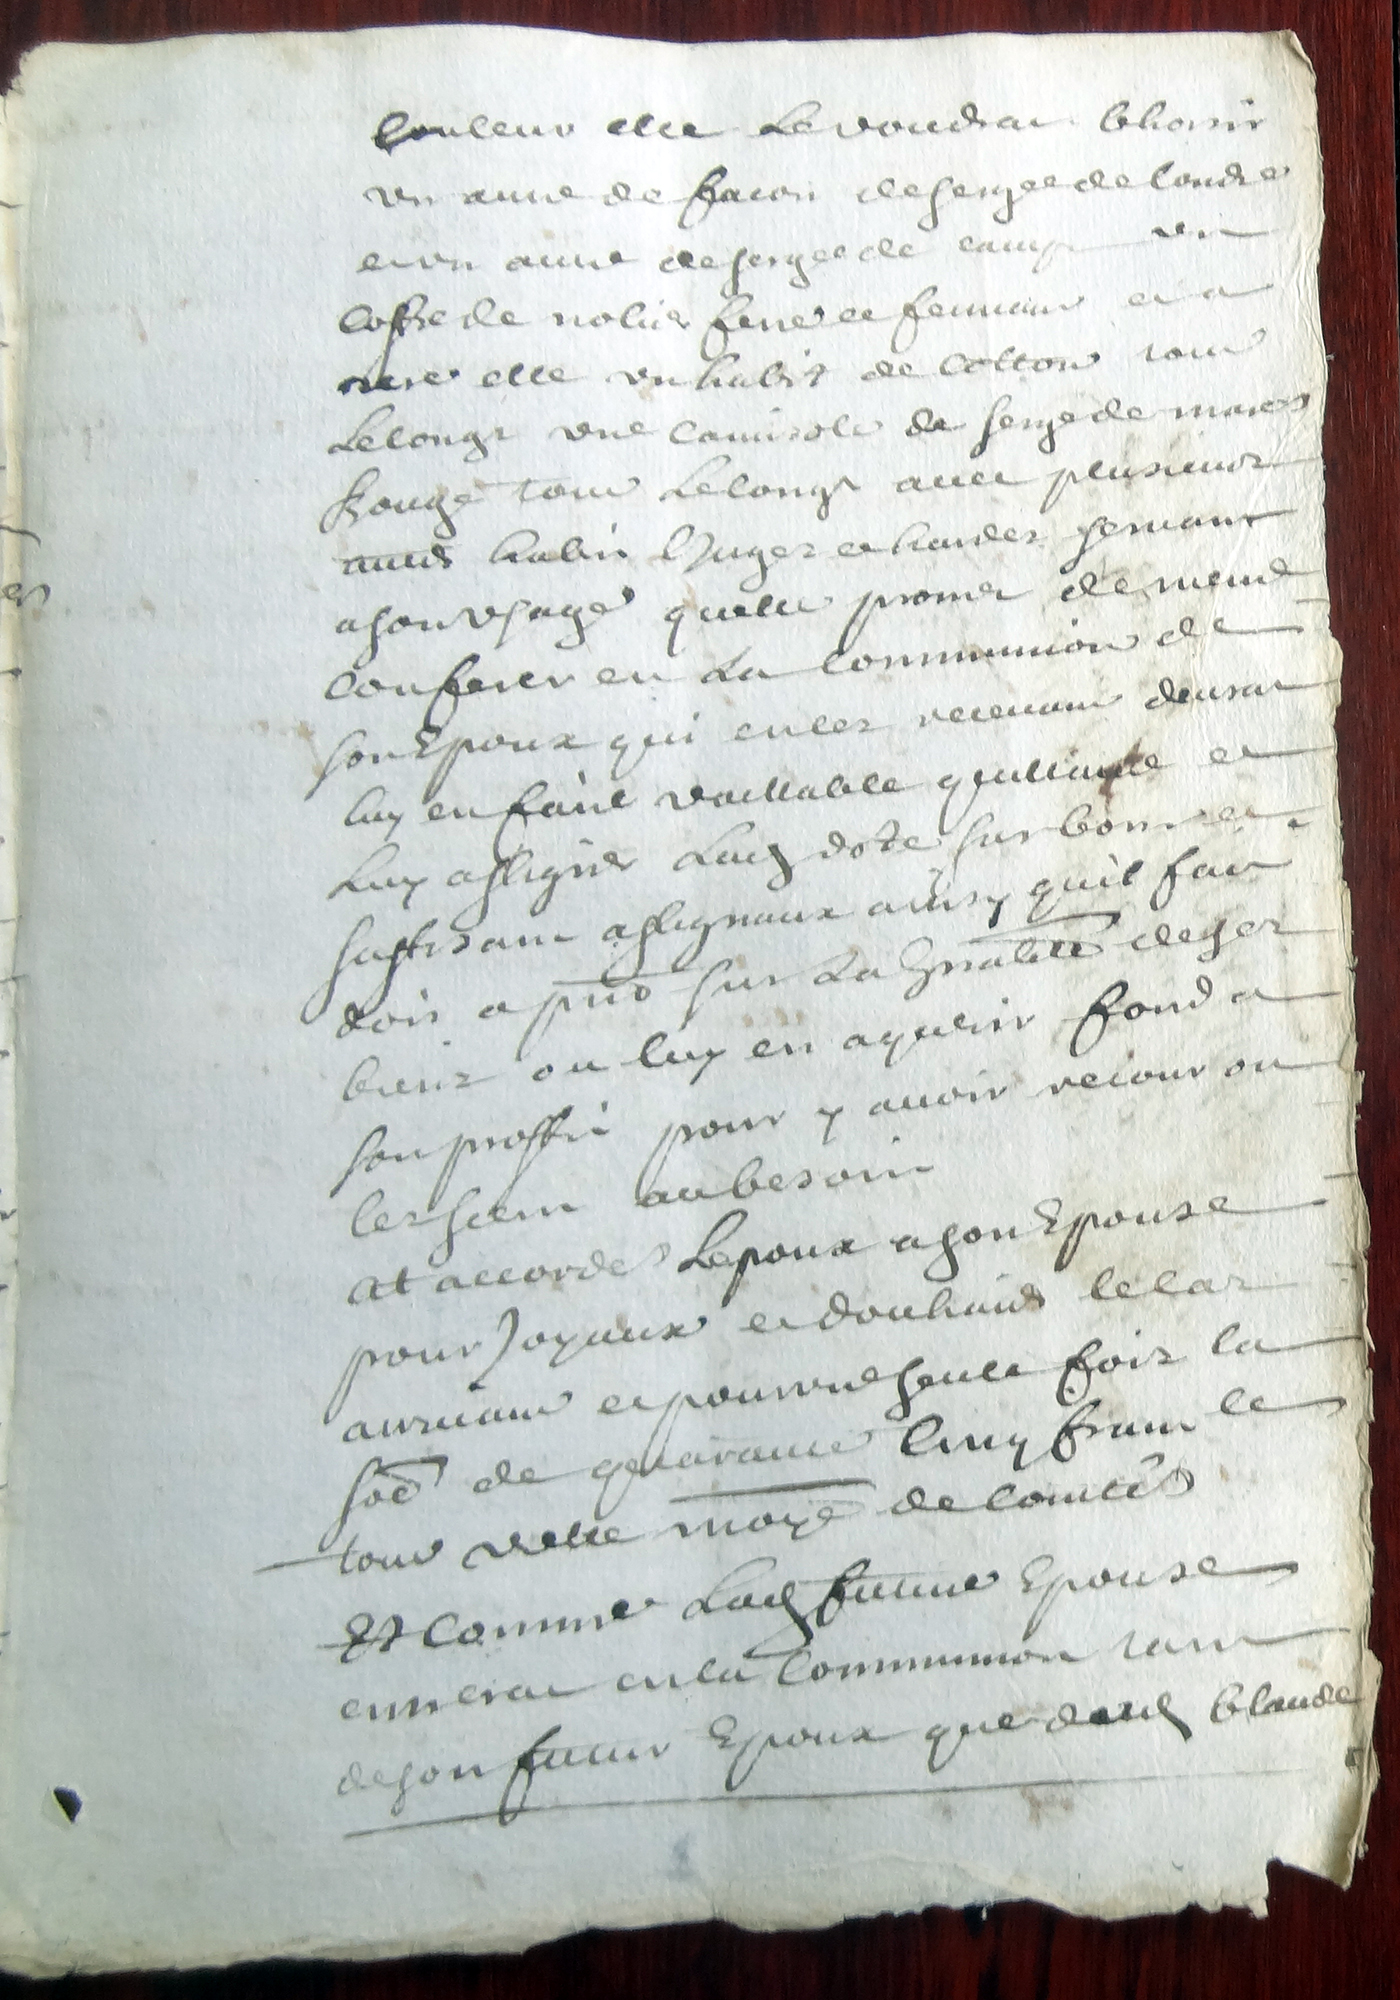 Couleur elle Le voudrat Choisir
un autre de facon de serge de Londre
et un autre de serge de camp un
Coffre de nolier ferré et fermant et a
elle un habit de Cotton tout
Le longt une Camisole de serge de
Rouge tout Le longt avec plusieurs
autres habit linges et hardes servant
a son usage quelle promet de meme
Conferer en La Communion de
son Epoux qui en les recevant deurat
luy en faire vaillable quittance et
Luy assigner Lad dote sur bons et
suffisant assignaux ainsy quil fait
dois a pnt sur La gnalité de ses
biens ou luy en aquerir fond a
son proffit pour y avoir recour ou
les siens au besoin
At accordé Lepoux a son Epouse
pour Joyaux et le cas
arrivant et pour une seule fois la
soe de quarante Cinq franc le
tout vielle monoye de Comté
Et Comme Lad future Epouse
entrerat en la Communion tant
de son futur Epoux que dud Claude